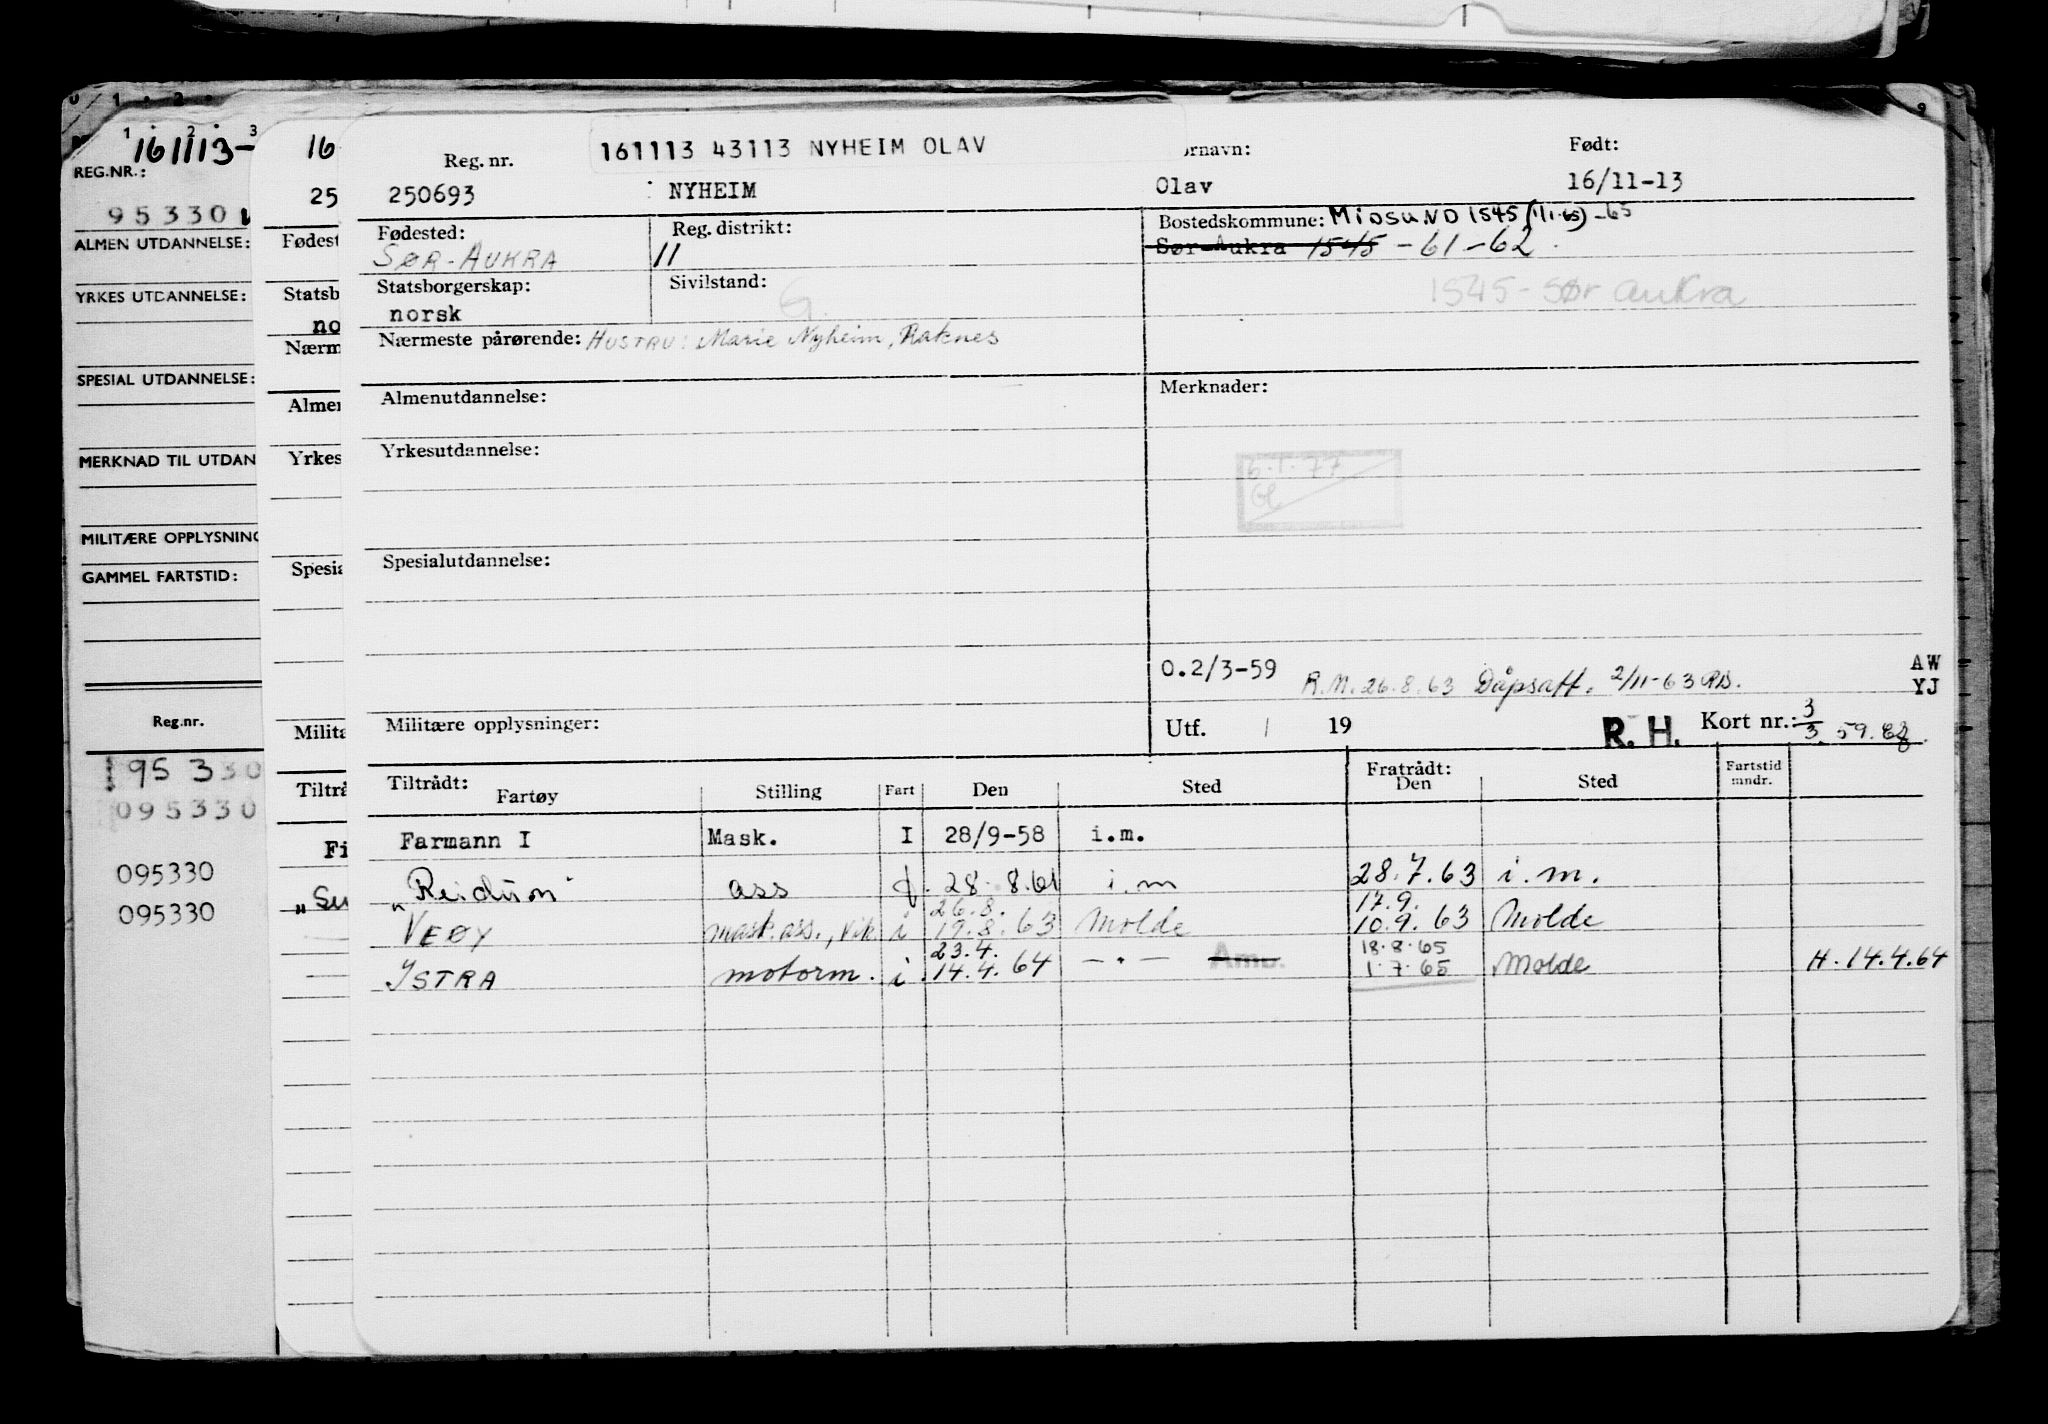 161113-
REG.NR.:
95330
ALMEN UTDANNELSE:
YRKES UTDANNELSE:
SPESIAL UTDANNELSE:
MERKNAD TIL UTDAN
MILITÆRE OPPLYSNING
GAMMEL FARTSTID:
Reg.nr.
95330
095330
095330
095330
16
25
Fødest
Statsb
no
Nærm
Almen
Yrkes
Spesia
Milita
Tiltrå
Fi
161113 43113 NYHEIM OLAV
Reg. nr. ornavn: Født:
250693 NYHEIM Olav 16/11-13
Fødested: Reg. distrikt: Bostedskommune: MIDSUND 1545 (1/1-65) -65
SØR-AUKRA 11 Sør-Aukra 1545 -61-62.
Statsborgerskap: Sivilstand: G. 1545-Sør Aukra
norsk
Nærmeste pårørende: HUSTRU: Marie Nyheim, Raknes
Almenutdannelse: Merknader:
Yrkesutdannelse:
6.1.77
Spesialutdannelse:
0.2/3-59 R.M. 26.8.63 Dåpsatt. 2/11-63 AW
YJ
Militære opplysninger: Utf. / 19 R. H. Kort nr.: 3/3 59.
Tiltrådt: Fratrådt: Fartstid
Fartøy Stilling Fart Den Sted Den Sted mndr.
Farmann I Mask. I 28/9-58 i.m.
"Reidun" ass 28.8.61 i.m 28.7.63 i.m.
26.8. 17.9.
VEØY mask.ass., vik. i 19.8.63 Molde 10.9.63 Molde
23.4. 18.8.65
ISTRA motorm. i 14.4.64 —"— Amb. 1.7.65 Molde H.14.4.64